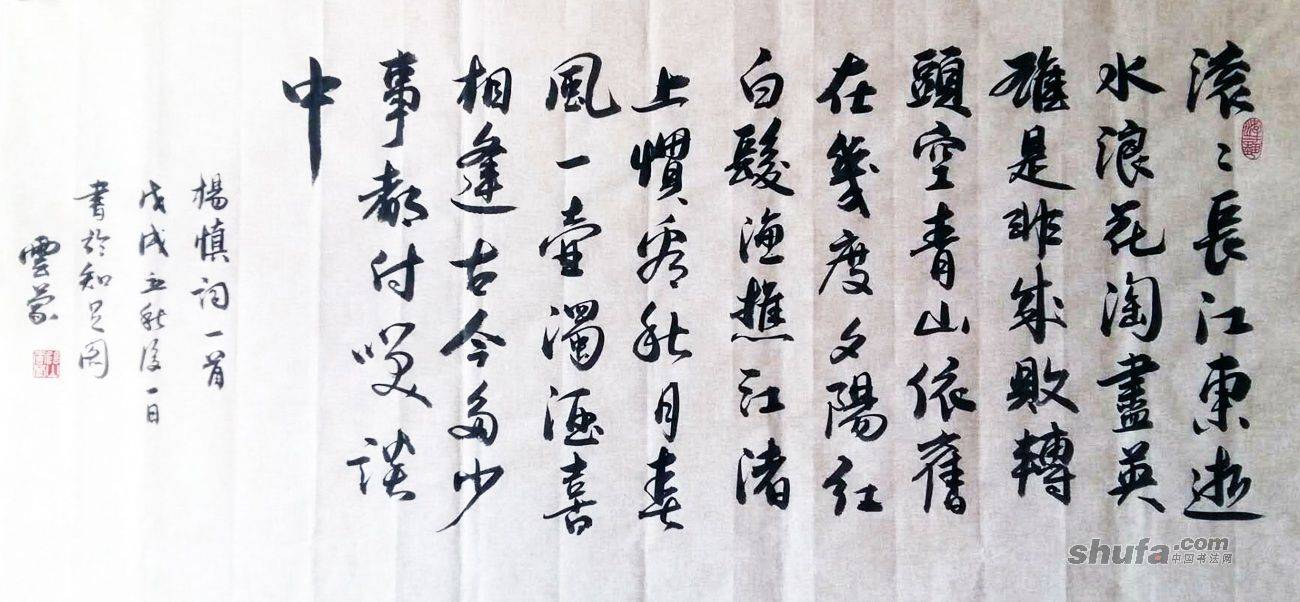 滚〻長江東逝
水浪花淘盡英
雄是非成敗轉
頭空青山依舊
在幾度夕陽紅
白髮漁樵江渚
上慣看秋月春
風一壺濁酒喜
相逢古今多少
事都付笑談
中
楊慎詞一首
戊戌立秋後一日
書於知足閣
雲蒙
shufa.com
中国书法网